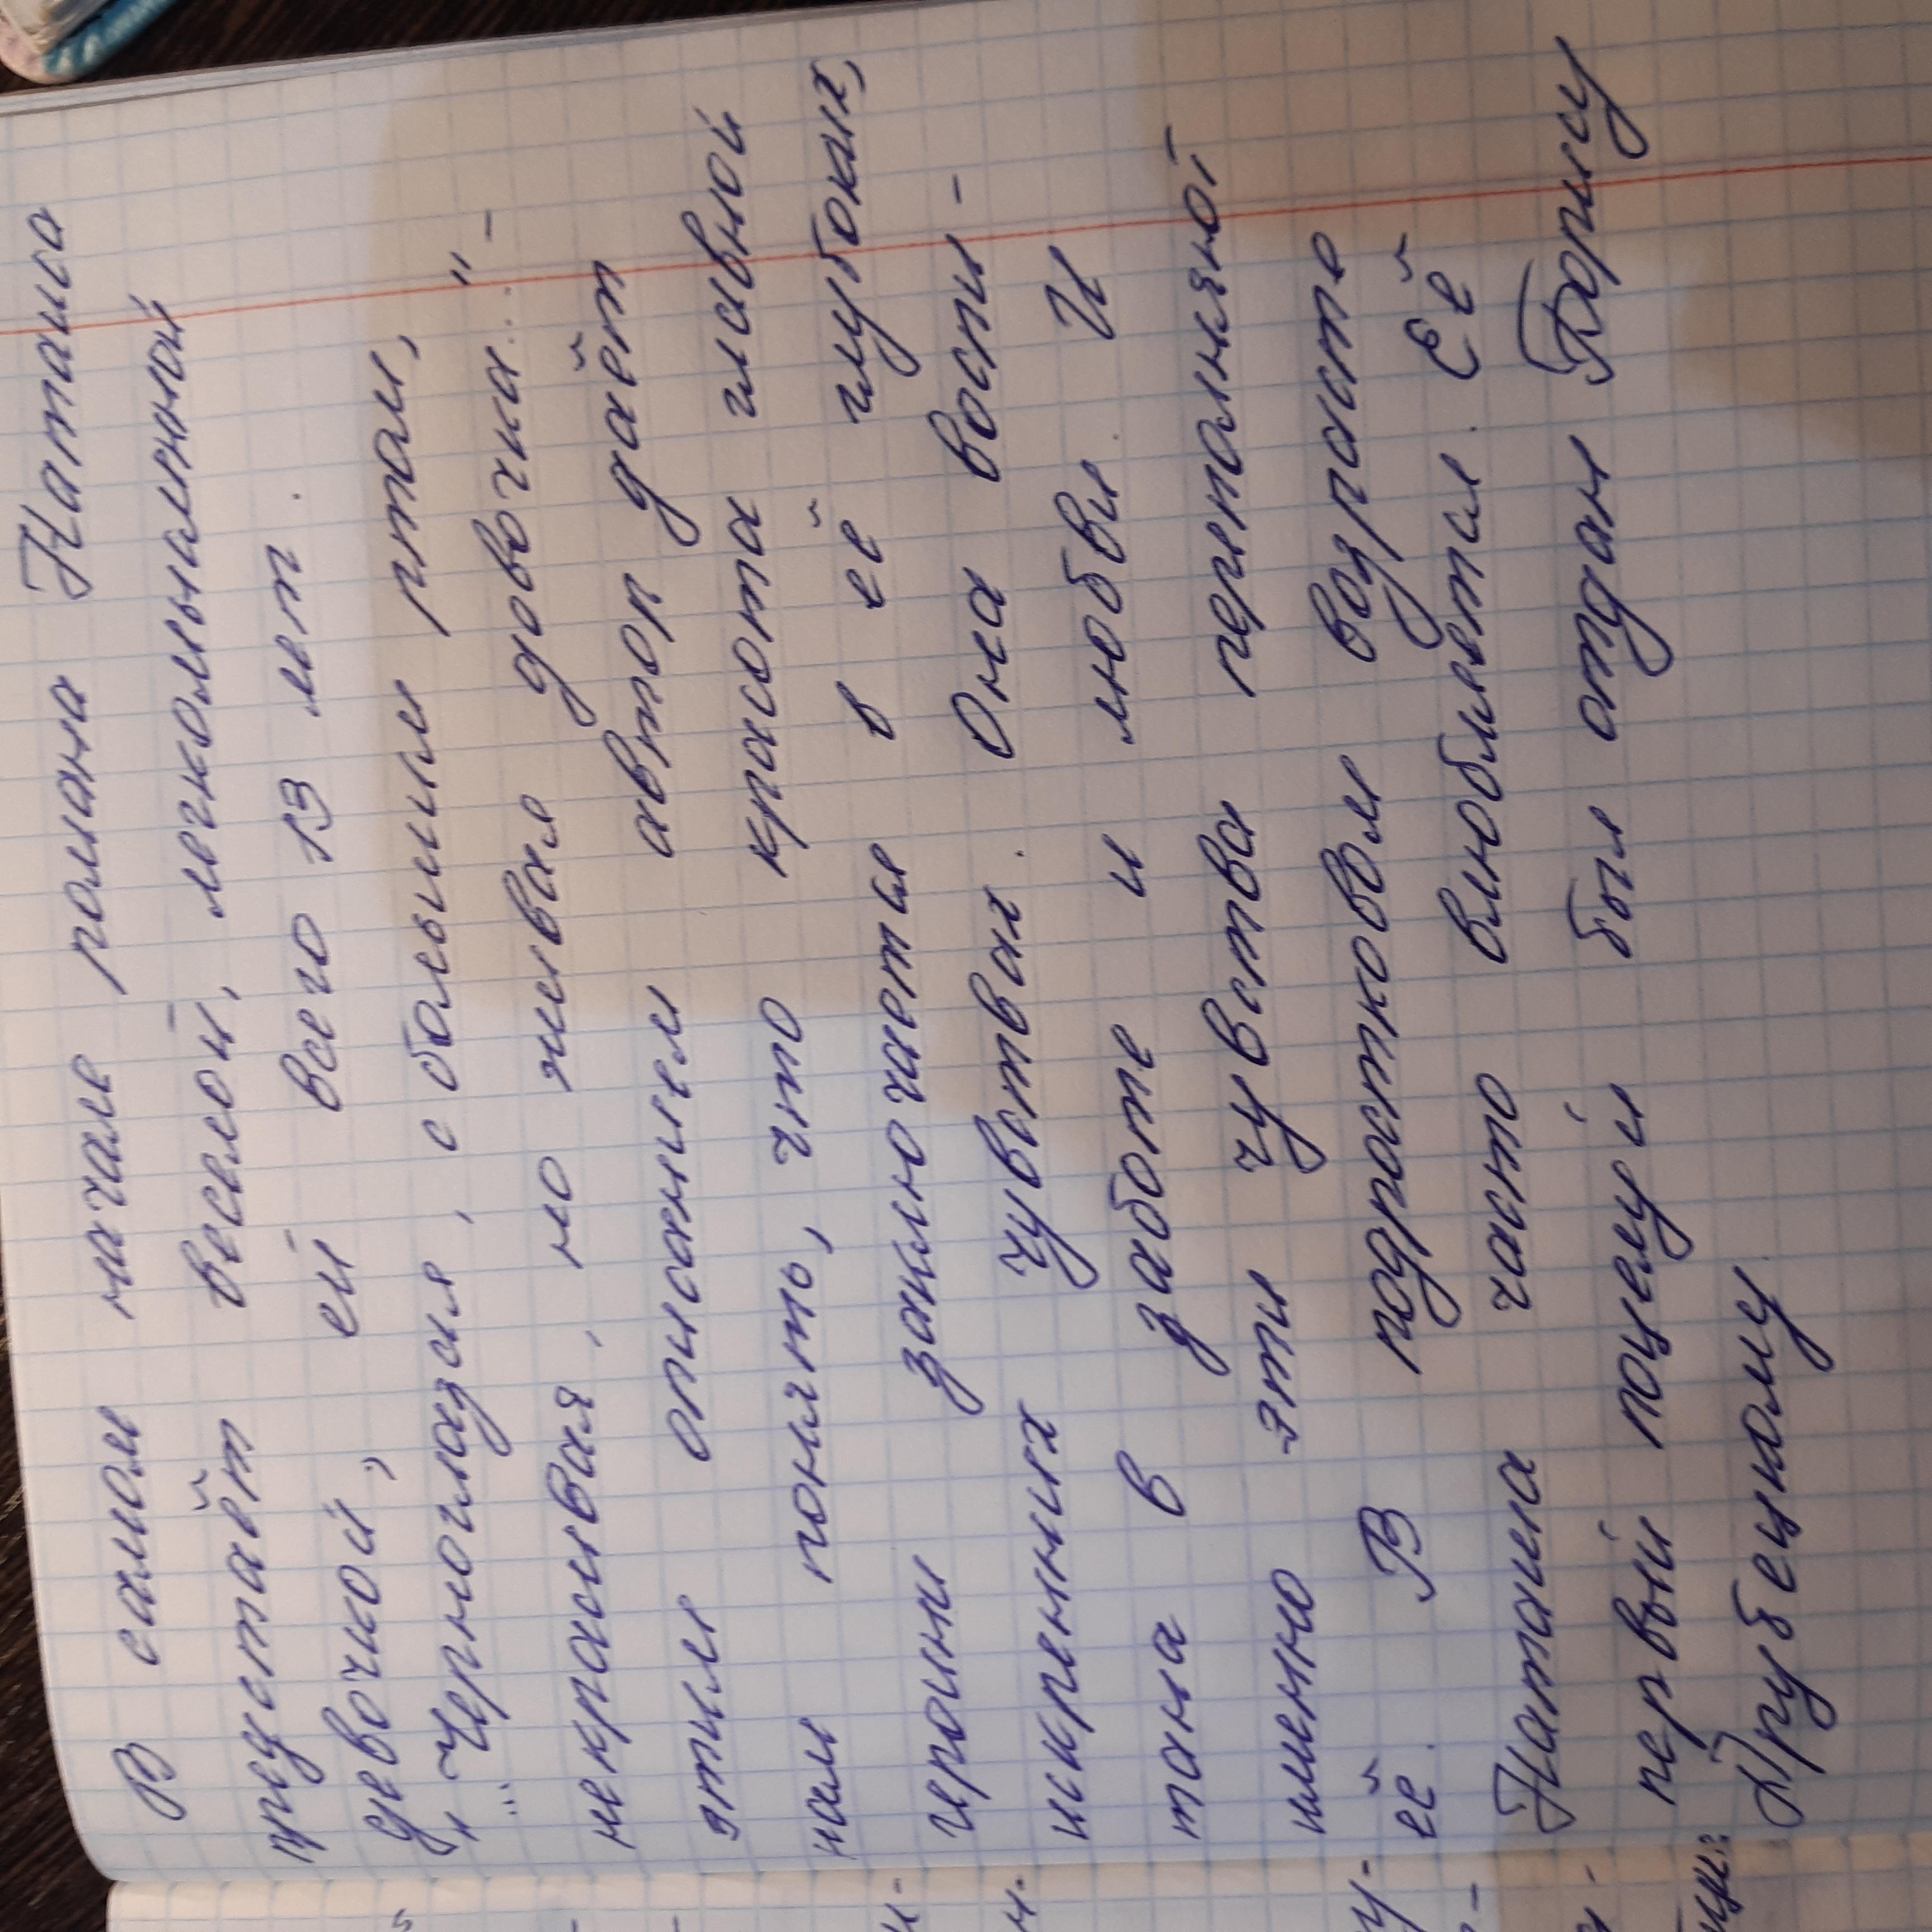 В самом начале романа Наташа
предстаёт весёлой, легкомысленной
девочкой, ей всего 13 лет.
"...Черноглазая, с большим ртом,
некрасивая, но живая девочка..." -
этим описанием автор даёт
нам понять, что красота главной
героини заключается в её глубоких,
искренних чувствах. Она воспи-
тана в заботе и любви. И
именно эти чувства переполняют
её. В подростковом возрасте
Наташа часто влюбляется. Её
первый поцелуй был отдан Борису
Друбецкому.